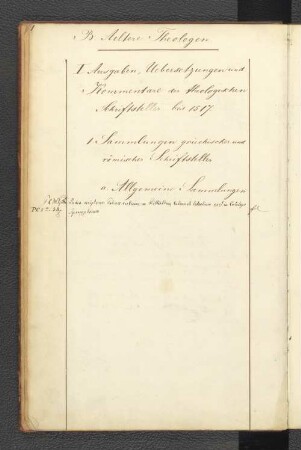 B Aeltere Theologen
I. Ausgaben, Uebersetzungen und
Kommentare der theologischen
Schriftsteller bis 1517.
1. Sammlungen griechischer und
römischer Schriftsteller
a. Allgemeine Sammlungen